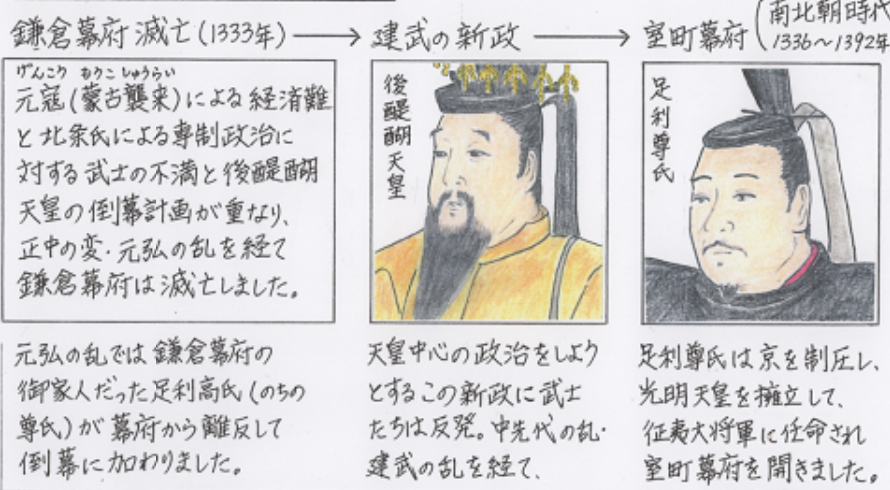 鎌倉幕府滅亡(1333年) → 建武の新政 → 室町幕府(南北朝時代
1336〜1392年
げんこう もうこしゅうらい
元寇(蒙古襲来)による経済難
と北条氏による専制政治に
対する武士の不満と後醍醐
天皇の倒幕計画が重なり、
正中の変・元弘の乱を経て
鎌倉幕府は滅亡しました。
元弘の乱では鎌倉幕府の
御家人だった足利高氏(のちの
尊氏)が幕府から離反して
倒幕に加わりました。
後醍醐天皇
天皇中心の政治をしよう
とするこの新政に武士
たちは反発。中先代の乱・
建武の乱を経て、
足利尊氏
足利尊氏は京を制圧し、
光明天皇を擁立して、
征夷大将軍に任命され
室町幕府を開きました。